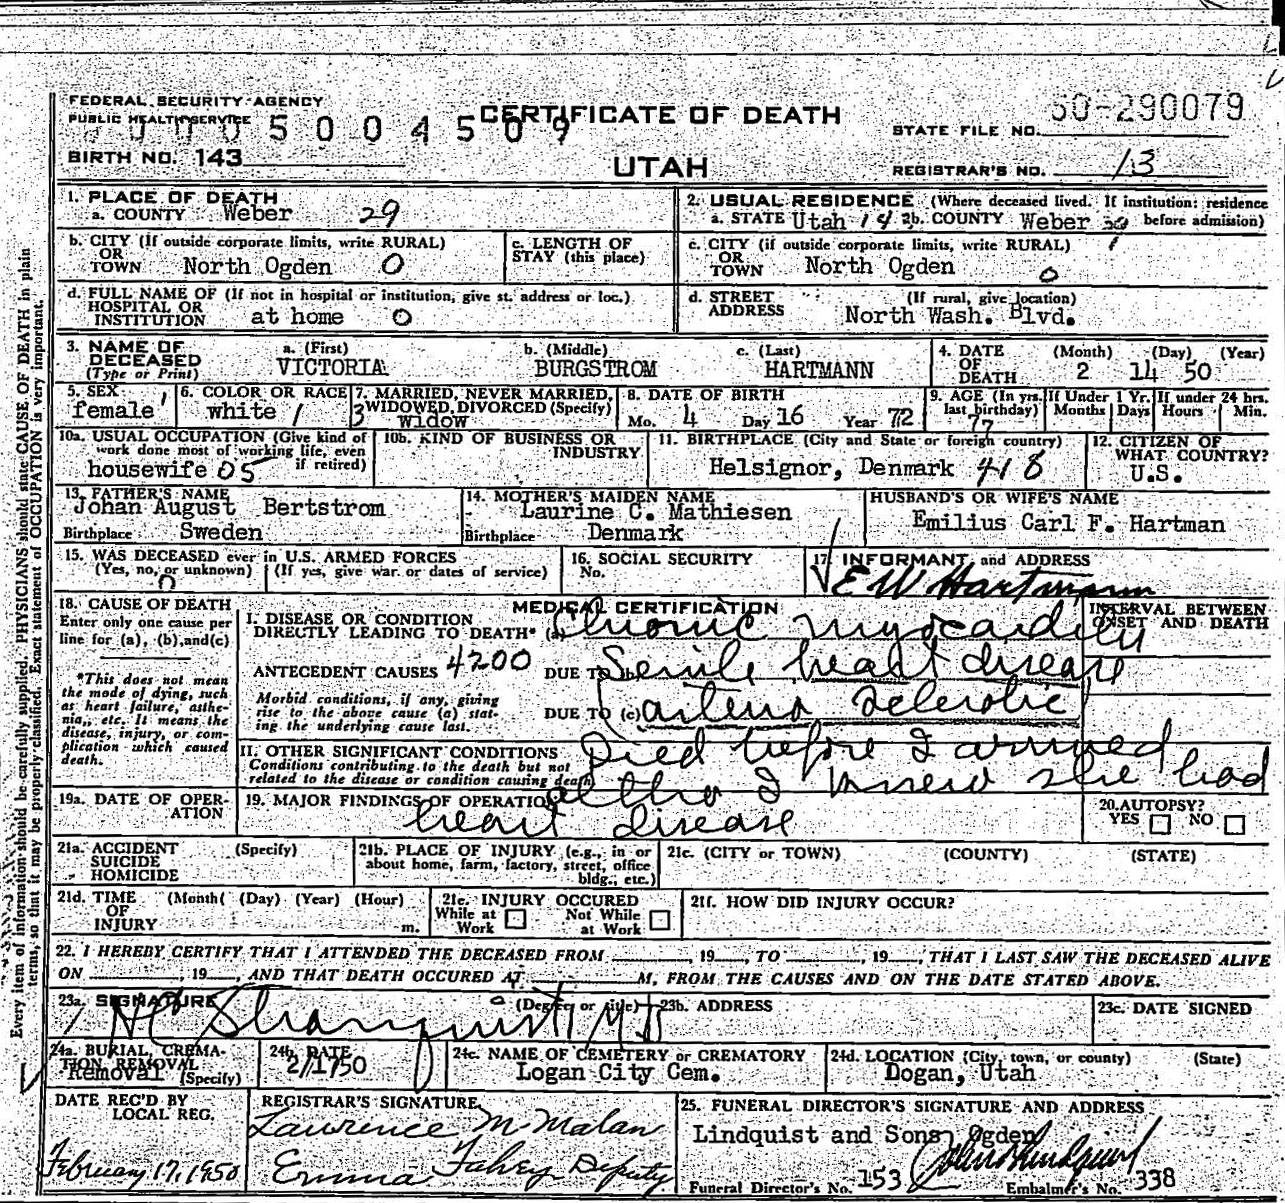 FEDERAL SECURITY AGENCY
PUBLIC HEALTH SERVICE
0005004509
CERTIFICATE OF DEATH
UTAH
50-290079
STATE FILE NO.
BIRTH NO. 143
REGISTRAR'S NO. 13
1. PLACE OF DEATH
a. COUNTY Weber 29
2. USUAL RESIDENCE (Where deceased lived. If institution: residence
a. STATE Utah 143 b. COUNTY Weber before admission)
b. CITY (If outside corporate limits, write RURAL)
OR
TOWN North Ogden 0
c. LENGTH OF
STAY (this place)
c. CITY (if outside corporate limits, write RURAL)
OR
TOWN North Ogden 0
d. FULL NAME OF (If not in hospital or institution, give st. address or loc.)
HOSPITAL OR
INSTITUTION at home 0
d. STREET (If rural, give location)
ADDRESS North Wash. Blvd.
3. NAME OF DECEASED (Type or Print)
a. (First) VICTORIA
b. (Middle) BURGSTROM
c. (Last) HARTMANN
4. DATE OF DEATH (Month) (Day) (Year)
2 14 50
5. SEX
female 1
6. COLOR OR RACE
white 1
7. MARRIED, NEVER MARRIED,
WIDOWED, DIVORCED (Specify)
3 widow
8. DATE OF BIRTH
Mo. 4 Day 16 Year 72
9. AGE (In yrs. last birthday) 77
If Under 1 Yr. Months Days
If under 24 hrs. Hours Min.
10a. USUAL OCCUPATION (Give kind of
work done most of working life, even
if retired)
housewife 05
10b. KIND OF BUSINESS OR
INDUSTRY
11. BIRTHPLACE (City and State or foreign country)
Helsignor, Denmark 418
12. CITIZEN OF
WHAT COUNTRY?
U.S.
13. FATHER'S NAME
Johan August Bertstrom
Birthplace Sweden
14. MOTHER'S MAIDEN NAME
Laurine C. Mathiesen
Birthplace Denmark
HUSBAND'S OR WIFE'S NAME
Emilius Carl F. Hartman
15. WAS DECEASED ever in U.S. ARMED FORCES
(Yes, no, or unknown) (If yes, give war or dates of service)
16. SOCIAL SECURITY
No.
17. INFORMANT and ADDRESS
E W Hartmann
18. CAUSE OF DEATH
Enter only one cause per
line for (a), (b), and (c)
*This does not mean
the mode of dying, such
as heart failure, asthe-
nia, etc. It means the
disease, injury, or com-
plication which caused
death.
MEDICAL CERTIFICATION
INTERVAL BETWEEN
ONSET AND DEATH
I. DISEASE OR CONDITION
DIRECTLY LEADING TO DEATH* (a) Chronic myocarditis
ANTECEDENT CAUSES 4200 DUE TO (b) Senile heart disease
Morbid conditions, if any, giving
rise to the above cause (a) stat-
ing the underlying cause last.
DUE TO (c) arterio sclerotic
II. OTHER SIGNIFICANT CONDITIONS
Conditions contributing to the death but not
related to the disease or condition causing death.
Died before I arrived
altho I knew she had
heart disease
19a. DATE OF OPER-
ATION
19. MAJOR FINDINGS OF OPERATION
20. AUTOPSY?
YES NO
21a. ACCIDENT (Specify)
SUICIDE
HOMICIDE
21b. PLACE OF INJURY (e.g., in or
about home, farm, factory, street, office
bldg., etc.)
21c. (CITY or TOWN) (COUNTY) (STATE)
21d. TIME (Month) (Day) (Year) (Hour)
OF
INJURY m.
21e. INJURY OCCURED
While at Work Not While at Work
21f. HOW DID INJURY OCCUR?
22. I HEREBY CERTIFY THAT I ATTENDED THE DECEASED FROM , 19 , TO , 19 , THAT I LAST SAW THE DECEASED ALIVE
ON , 19 , AND THAT DEATH OCCURED AT M, FROM THE CAUSES AND ON THE DATE STATED ABOVE.
23a. SIGNATURE (Degree or title)
23b. ADDRESS
23c. DATE SIGNED
24a. BURIAL, CREMA-
TION, REMOVAL
Removal (Specify)
24b. DATE
2/1750
24c. NAME OF CEMETERY or CREMATORY
Logan City Cem.
24d. LOCATION (City, town, or county) (State)
Dogan, Utah
DATE REC'D BY
LOCAL REG.
February 17, 1950
REGISTRAR'S SIGNATURE
Lawrence M Malan
Emma Fahey Deputy
25. FUNERAL DIRECTOR'S SIGNATURE AND ADDRESS
Lindquist and Sons, Ogden
Funeral Director's No. 153 Embalmer's No. 338
Every item of information should be carefully supplied. PHYSICIANS should state CAUSE OF DEATH in plain
terms, so that it may be properly classified. Exact statement of OCCUPATION is very important.